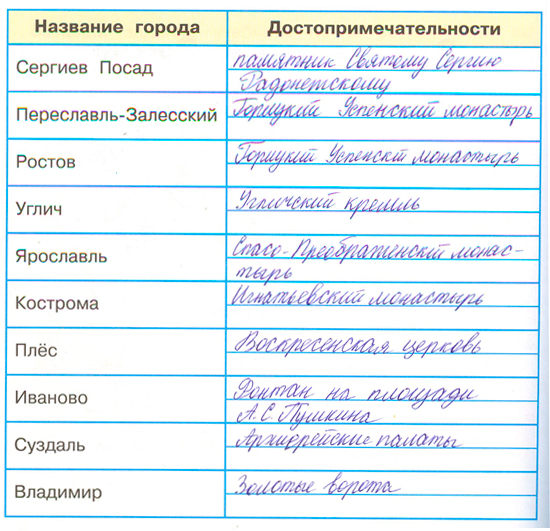 Название города Достопримечательности
Сергиев Посад памятник Святому Сергию
Радонетскому
Переславль-Залесский Горицкий Успенский монастырь
Ростов Горицкий Успенскй монастырь
Углич Угличский кремль
Ярославль Спасо-Преображенскй монас-
тырь
Кострома Игнатьевский монастырь
Плёс Воскресенская церковь
Иваново Фонтан на площади
А.С. Пушкина
Суздаль Архиерейские палаты
Владимир Золотые ворота